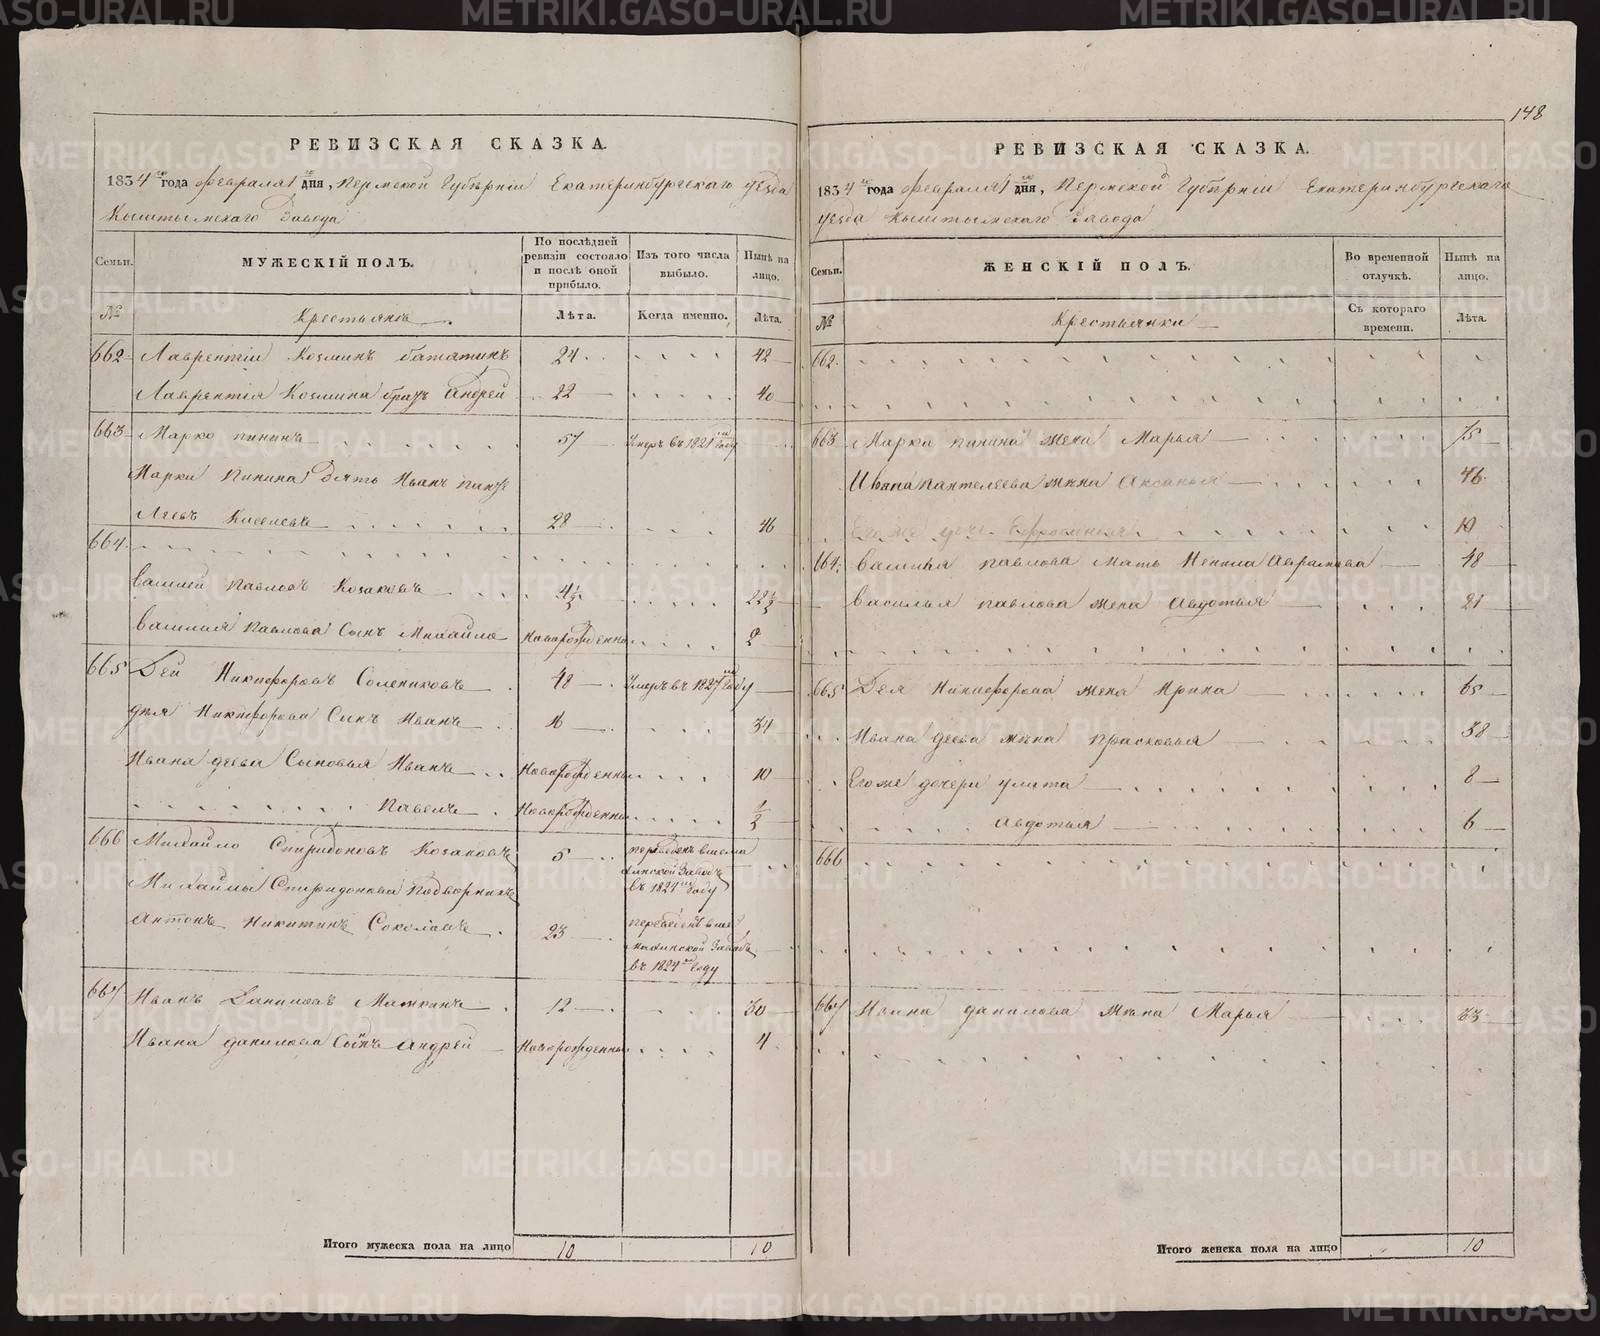 148
РЕВИЗСКАЯ СКАЗКА.
1834 го года февраля 1 го дня, Пермской Губѣрніи Екатеринбургскаго уезда
Кыштымскаго Завода
Семьи.
МУЖЕСКІЙ ПОЛЪ.
По послѣдней ревизіи состояло и послѣ оной прибыло.
Изъ того числа выбыло.
Нынѣ на лицо.
№
Крестьянъ
Лѣта.
Когда именно.
Лѣта.
662 Лаврентій Козминъ 24 42
Лаврентія Козмина братъ Андрей 22 40
663 Марко Пининъ 57 Умеръ въ 1821 м Году
Марки Пинина зять Иванъ Панте
Леевъ Киселевъ 28 46
664
Василий Павловъ Козаковъ 4½ 22½
Василия Павлова Сынъ Михайло Новорожденны 2
665 Дей Никифоровъ Солениковъ 48 Умеръ въ 1827 м Году
Дея Никифорова Сынъ Иванъ 16 34
Ивана деева Сыновья Иванъ Новорожденны 10
Павелъ Новорожденны ½
666 Михайло Спиридоновъ Козаковъ 5 переведенъ в Шема
хинской Заводъ
въ 1824 м Году
Михайлы Спиридонова Подворникъ
Антонъ Никитинъ Соколовъ 23 переведенъ в Ше
махинской Заводъ
въ 1824 м Году
667 Иванъ Даниловъ Машкинъ 12 30
Ивана данилова Сынъ Андрей Новорожденны 4
Итого мужеска пола на лицо 10 10
РЕВИЗСКАЯ СКАЗКА.
1834 го года февраля 1 го дня, Пермской Губѣрніи Екатеринбургскаго
уезда Кыштымскаго Завода
Семьи.
ЖЕНСКІЙ ПОЛЪ.
Во временной отлучкѣ.
Нынѣ на лицо.
№
Крестьянки
Съ котораго времени.
Лѣта.
662
663 Марки Пинина жена Марья 75
Ивана Пантелеева жена Аксинья 46
Его же дочь Ефросинья 10
664 Василья Павлова Мать Ненила Аврамова 48
Василья Павлова жена Авдотья 21
665 Дея Никифорова жена Ирина 65
Ивана деева жена Прасковья 38
Его же дочери улита 8
Авдотья 6
666
667 Ивана данилова жена Марья 33
Итого женска пола на лицо 10
METRIKI.GASO-URAL.RU